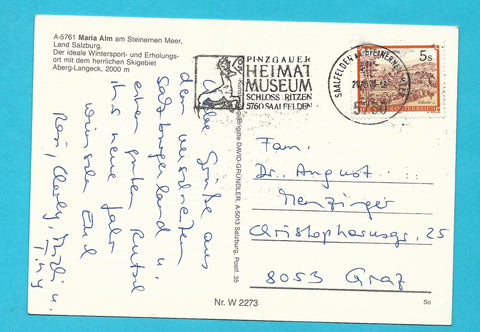 A-5761 Maria Alm am Steinernen Meer,
Land Salzburg.
Der ideale Wintersport- und Erholungs-
ort mit dem herrlichen Skigebiet
Aberg-Langeck, 2000 m
PINZGAUER
HEIMAT
MUSEUM
SCHLOSS RITZEN
5760 SAALFELDEN
SAALFELDEN AM STEINERNEN MEER
5760
5s
Grüße aus
dem verschneiten
Salzburgerland u.
einen guten Rutsch
ins neue Jahr
wünschen Euch
u.
Brigitte DAVID-GRÜNDLER, A-5013 Salzburg, Postf. 35
Fam.
Dr. August
Menzinger
Christophorusg. 25
8053 Graz
Nr. W 2273
So